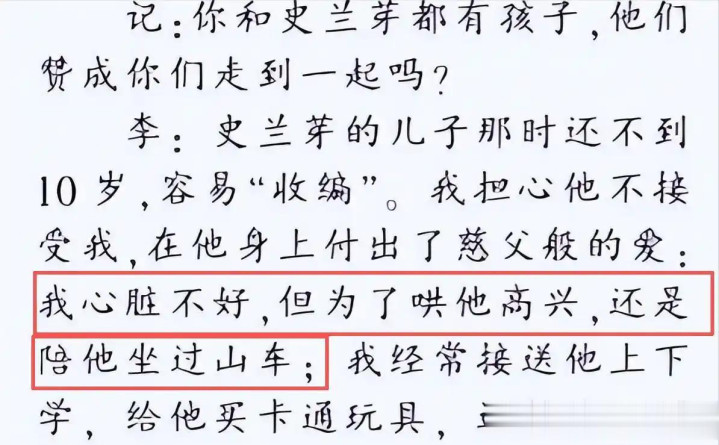 记：你和史兰芽都有孩子，他们
赞成你们走到一起吗？
李：史兰芽的儿子那时还不到
10岁，容易“收编”。我担心他不接
受我，在他身上付出了慈父般的爱：
我心脏不好，但为了哄他高兴，还是
陪他坐过山车；我经常接送他上下
学，给他买卡通玩具，